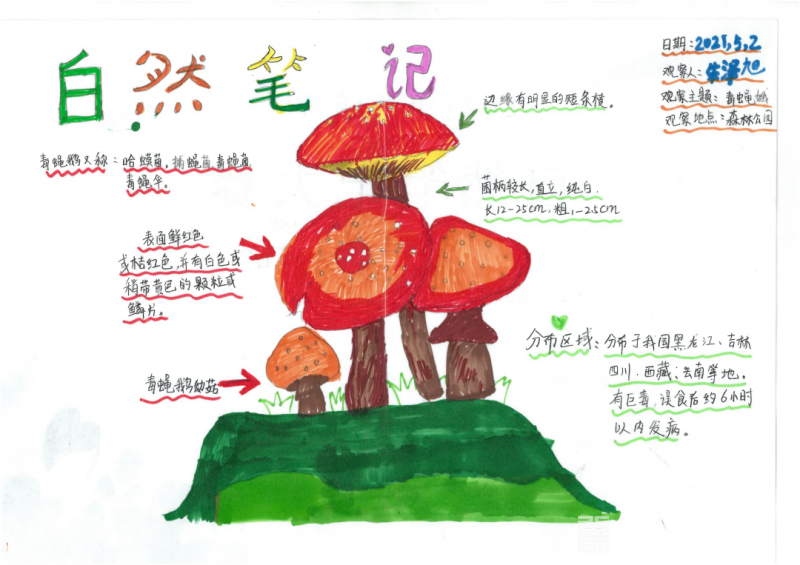 自然笔记
日期:2021,5,2
观察人:朱泽旭
观察主题:毒蝇鹅
观察地点:森林公园
边缘有明显的短条棱。
毒蝇鹅又称:哈蟆菌,捕蝇菌,毒蝇菌
毒蝇伞。
菌柄较长,直立,纯白.
长12-25cm,粗1-2.5cm
表面鲜红色
或桔红色,并有白色或
稍带黄色的颗粒或
鳞片。
分布区域:分布于我国黑龙江、吉林
四川、西藏、云南等地.
有巨毒,误食后约6小时
以内发病。
毒蝇鹅幼菇